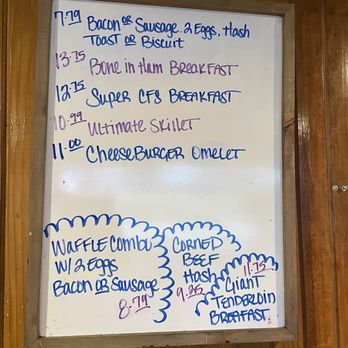 7.79 Bacon or Sausage. 2 Eggs, Hash
Toast or Biscuit
13.75 Bone in Ham Breakfast
12.75 Super CFS Breakfast
10.99 Ultimate Skillet
11.00 Cheeseburger Omelet
Waffle Combo
w/ 2 Eggs
Bacon or Sausage
8.79
Corned
Beef
Hash
9.25
11.75
Giant
Tenderloin
Breakfast